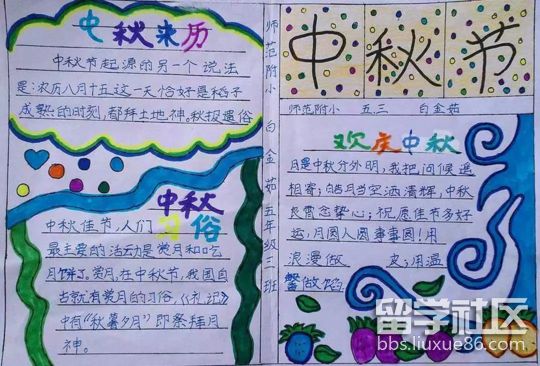 中秋来历
中秋节起源的另一个说法
是:农历八月十五这一天恰好是稻子
成熟的时刻,都拜土地神。秋报遗俗
中秋
习俗
中秋佳节,人们
最主要的活动是赏月和吃
月饼了。赏月在中秋节,我国自
古就有赏月的习俗,《礼记》
中有“秋暮夕月”即祭拜月
神。
师范附小 白金茹 五年级三班
中秋节
师范附小 五.三 白金茹
欢庆中秋
月是中秋分外明,我把问候遥
相寄;皓月当空洒清辉,中秋
良宵念挚心;祝愿佳节多好
运,月圆人圆事事圆!用
浪漫做 皮,用温
馨做馅
留学社区
bbs.liuxue86.com